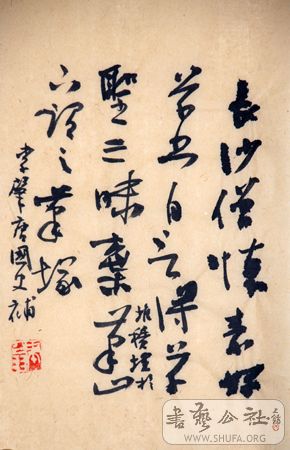 長沙僧懷素好
草書自言得草
聖三昧棄筆山
堆積埋於
下謂之筆塚
李肇唐國史補
書藝公社
WWW.SHUFA.ORG